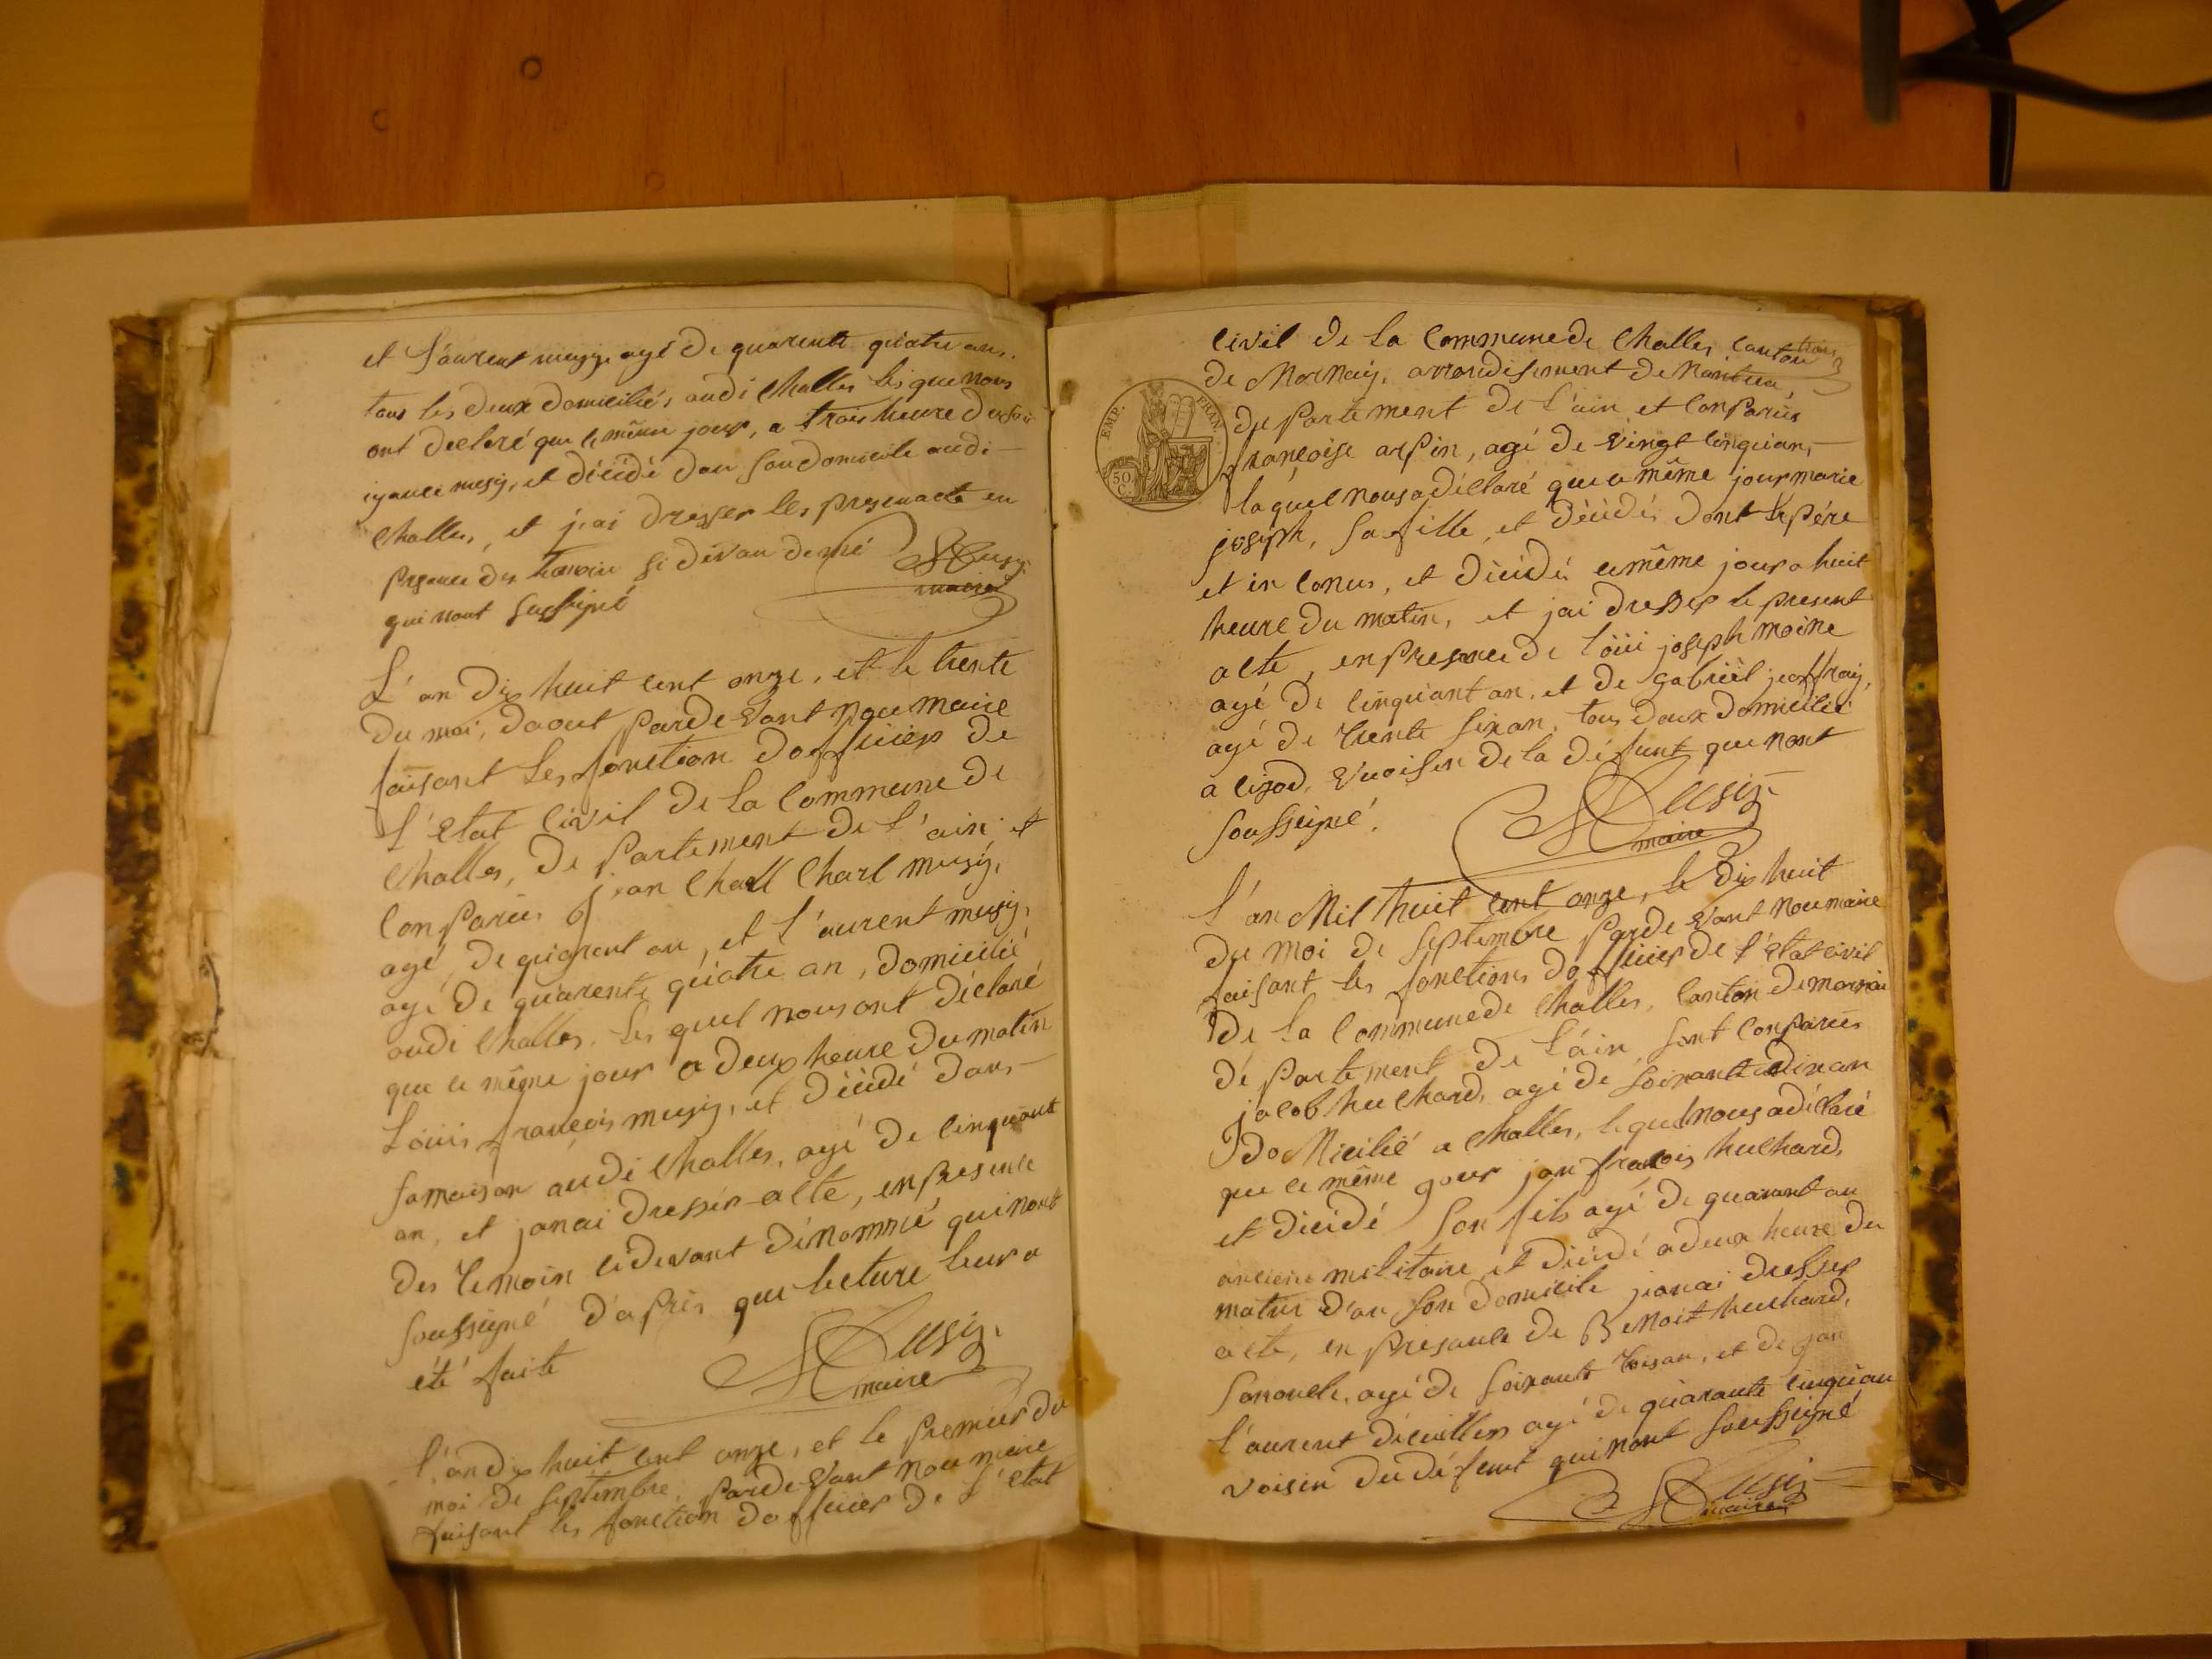 et Laurent musy agé de quarente quatre ans.
tous les deux domicilié, audi Challes les que nous
ont declaré que le même jour, a trois heure du soir
musy, et décidé dan son domicile audi
Challes, et j'ai dresser les presenacte en
presence des temoin si devan demé
qui nont sussigné
Musy
maire
L'an dix huit cent onze, et le trente
du moi, daout par de vant nou maire
faisant les fonction dofficier de
l'etat civil de la Commune de
Challes, de partement de l'ain, et
Conparus jean Charl musy,
agé, de an, et L'aurent musy,
agé de quarente quiatre an, domicilié
audi Challes, les quel nous ont déclaré
que le même jour a deux heure du matin
Louis francois musiy, et décidé dans
sa maison audi Challes, agé de cinquant
an, et janai dresser acte, en presence
des temoin cidevant dénommé qui nont
soussigné d'apres que lecture leur a
été faite
Musiy
maire
L'an dix huit cent onze, et le premier du
moi de septembre, par de vant nou maire
faisant les fonction dofficier de l'etat
trois
civil de la Commune de Challes canton
de Mornaiy, arrondisement de Nantua
EMP. FRAN.
50 C.
de partement de l'ain et Conparus
francoise arpin, agé de vingt cinquian,
laquel nous a déclaré que ce même jour marie
joseph, sa fille, et décidé, dont le pére
et in conus, et décidé ce même jour a huit
heure du matin, et jai dresser le present
acte, en presence de Loui joseph moine
agé de cinquiant an, et de gabriël jeoffraiy,
agé de trente sixan, tous deux domicilié
a cisod, vuoisin de la défunt que nont
soussigné.
Musiy
maire
L'an Mil huit cent onze, le dix huit
du moi de septembre par de vant nou maire
faisant les fonctions dofficier de l'etat civil
de la Commune de Challes, canton de mornai
dé partement de l'ain, sont conparus
jacob huchard, agé de soixante dixan
doMicilié a Challes, lequel nous a déclaré
que le même gour jan francois huchard,
et décidé son fils agé de quarant an
ancien militaire et décidé a deux heure du
matin dan son domicile janai dresser
acte, en presance de Benoit huchard,
sononcle, agé de soixante toisan, et de jan
L'aurent décuillen agé de quarante cinquian
voisin du défunt qui nont soussigné
Musiy
maire